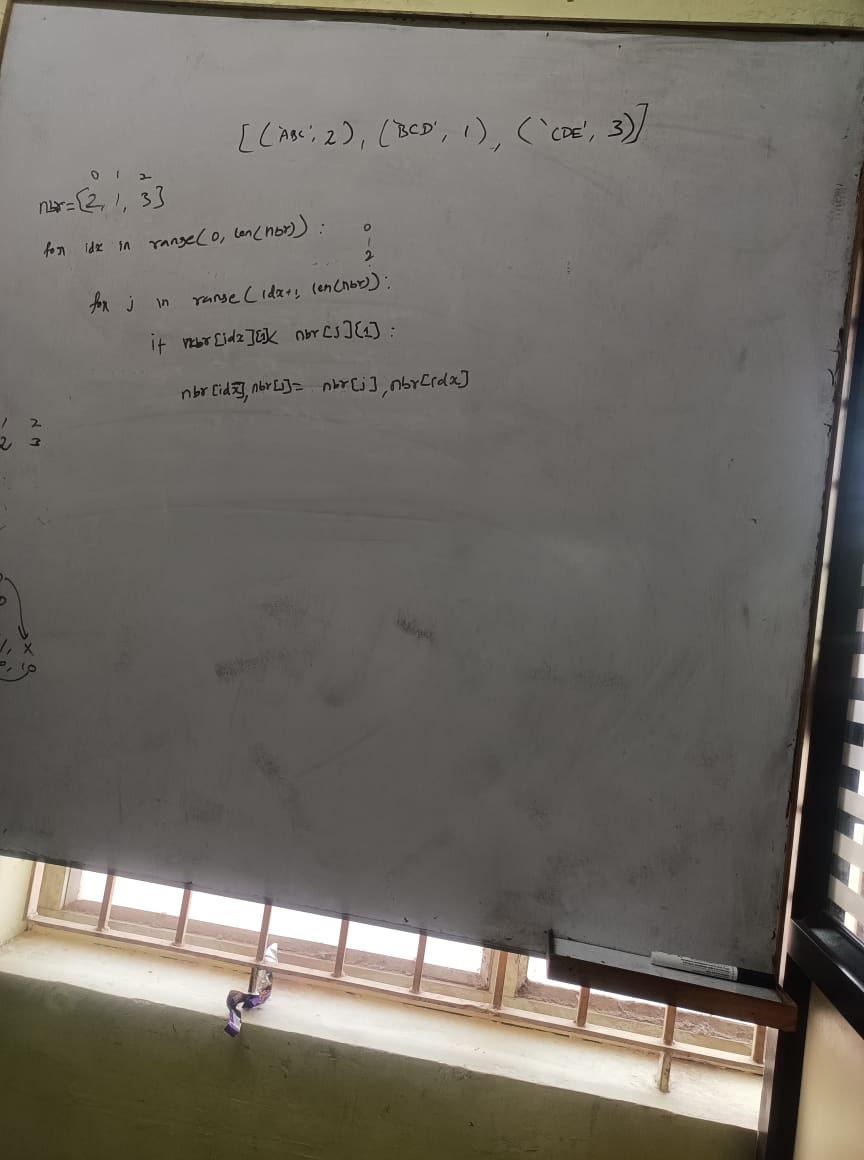 [('ABC', 2), ('BCD', 1), ('CDE', 3)]
0 1 2
nbr={2, 1, 3}
for idx in range(0, len(nbr)):
0
1
2
for j in range(idx+1, len(nbr)):
if nbr[idx][1]< nbr[j][1]:
nbr[idx], nbr[j]= nbr[j], nbr[idx]
1 2
2 3
1, x
0, 10